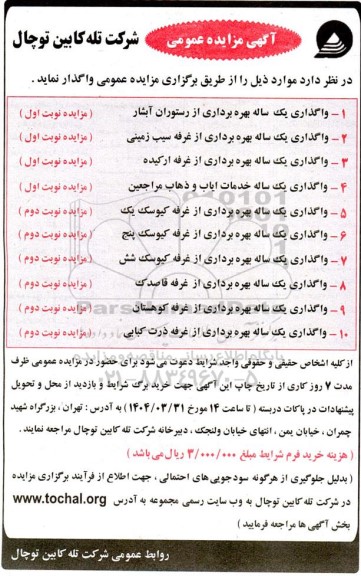 آگهی مزایده عمومی
شرکت تله کابین توچال
در نظر دارد موارد ذیل را از طریق برگزاری مزایده عمومی واگذار نماید .
۱ – واگذاری یک ساله بهره برداری از رستوران آبشار ( مزایده نوبت اول )
۲ – واگذاری یک ساله بهره برداری از غرفه سیب زمینی ( مزایده نوبت اول )
۳ – واگذاری یک ساله بهره برداری از غرفه ارکیده ( مزایده نوبت اول )
۴ – واگذاری یک ساله خدمات ایاب و ذهاب مراجعین ( مزایده نوبت اول )
۵ – واگذاری یک ساله بهره برداری از غرفه کیوسک یک ( مزایده نوبت دوم )
۶ – واگذاری یک ساله بهره برداری از غرفه کیوسک پنج ( مزایده نوبت دوم )
۷ – واگذاری یک ساله بهره برداری از غرفه کیوسک شش ( مزایده نوبت دوم )
۸ – واگذاری یک ساله بهره برداری از غرفه قاصدک ( مزایده نوبت دوم )
۹ – واگذاری یک ساله بهره برداری از غرفه کوهستان ( مزایده نوبت دوم )
۱۰ – واگذاری یک ساله بهره برداری از غرفه ذرت کبابی ( مزایده نوبت دوم )
از کلیه اشخاص حقیقی و حقوقی واجد شرایط دعوت می شود برای حضور در مزایده عمومی ظرف
مدت ۷ روز کاری از تاریخ چاپ این آگهی جهت خرید برگ شرایط و بازدید از محل و تحویل
پیشنهادات در پاکات دربسته ( تا ساعت ۱۴ مورخ ۱۴۰۴/۰۳/۳۱ ) به آدرس : تهران ، بزرگراه شهید
چمران ، خیابان یمن ، انتهای خیابان ولنجک ، دبیرخانه شرکت تله کابین توچال مراجعه نمایند .
( هزینه خرید فرم شرایط مبلغ ۳/۰۰۰/۰۰۰ ریال می باشد )
( بدلیل جلوگیری از هرگونه سودجویی های احتمالی ، جهت اطلاع از فرآیند برگزاری مزایده
در شرکت تله کابین توچال به وب سایت رسمی مجموعه به آدرس www.tochal.org
بخش آگهی ها مراجعه فرمایید )
روابط عمومی شرکت تله کابین توچال